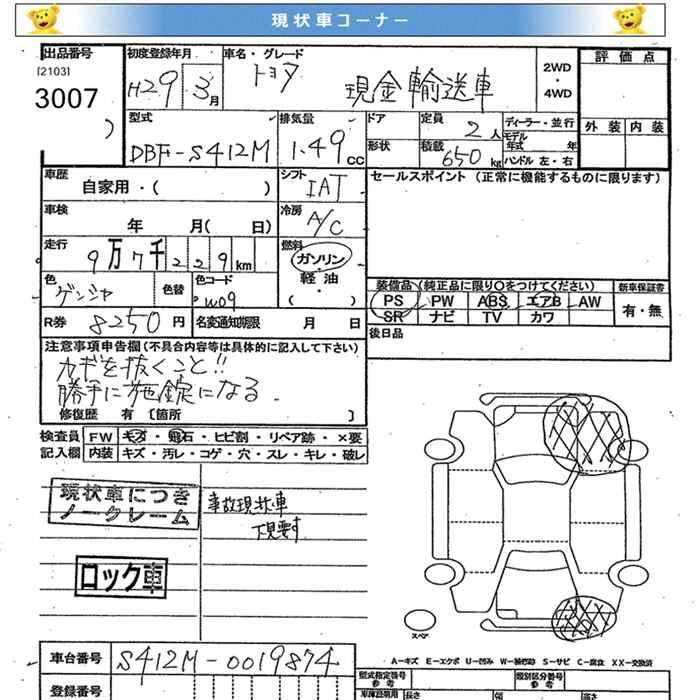 現状車コーナー
出品番号
[2103]
3007
初度登録年月
H29 3月
車名・グレード
トヨタ
現金輸送車
2WD
・
4WD
評価点
外装 内装
型式
DBF-S412M
排気量
1.49cc
ドア
形状
定員
2人
積載
650kg
ディーラー・並行
モデル
年式 年
ハンドル 左・右
車歴
自家用・( )
シフト
IAT
セールスポイント (正常に機能するものに限ります)
車検
年 月( 日)
冷房
A/C
走行
9万7千229km
燃料
ガソリン
軽油
・
( )
色
色替
色コード
W09
装備品(純正品に限り○をつけてください)
PS PW ABS エアB AW
SR ナビ TV カワ
新車保証書
有・無
R券 8250円
名変通知期限 月 日
後日品
注意事項申告欄(不具合内容等は具体的に記入して下さい)
カギを抜くこと!!
勝手に施錠になる
修復歴 有 〔箇所 〕
検査員 FW キズ・飛石・ヒビ割・リペア跡・×要
記入欄 内装 キズ・汚レ・コゲ・穴・スレ・キレ・破レ
現状車につき
ノークレーム
事故現状車
下見要す
ロック車
スペア
A-キズ E-エクボ U-凹み W-補修跡 S-サビ C-腐食 XX-交換済
車台番号 S412M-0019874
型式指定番号
参考
類別区分番号
参考
登録番号
長さ
幅
高さ